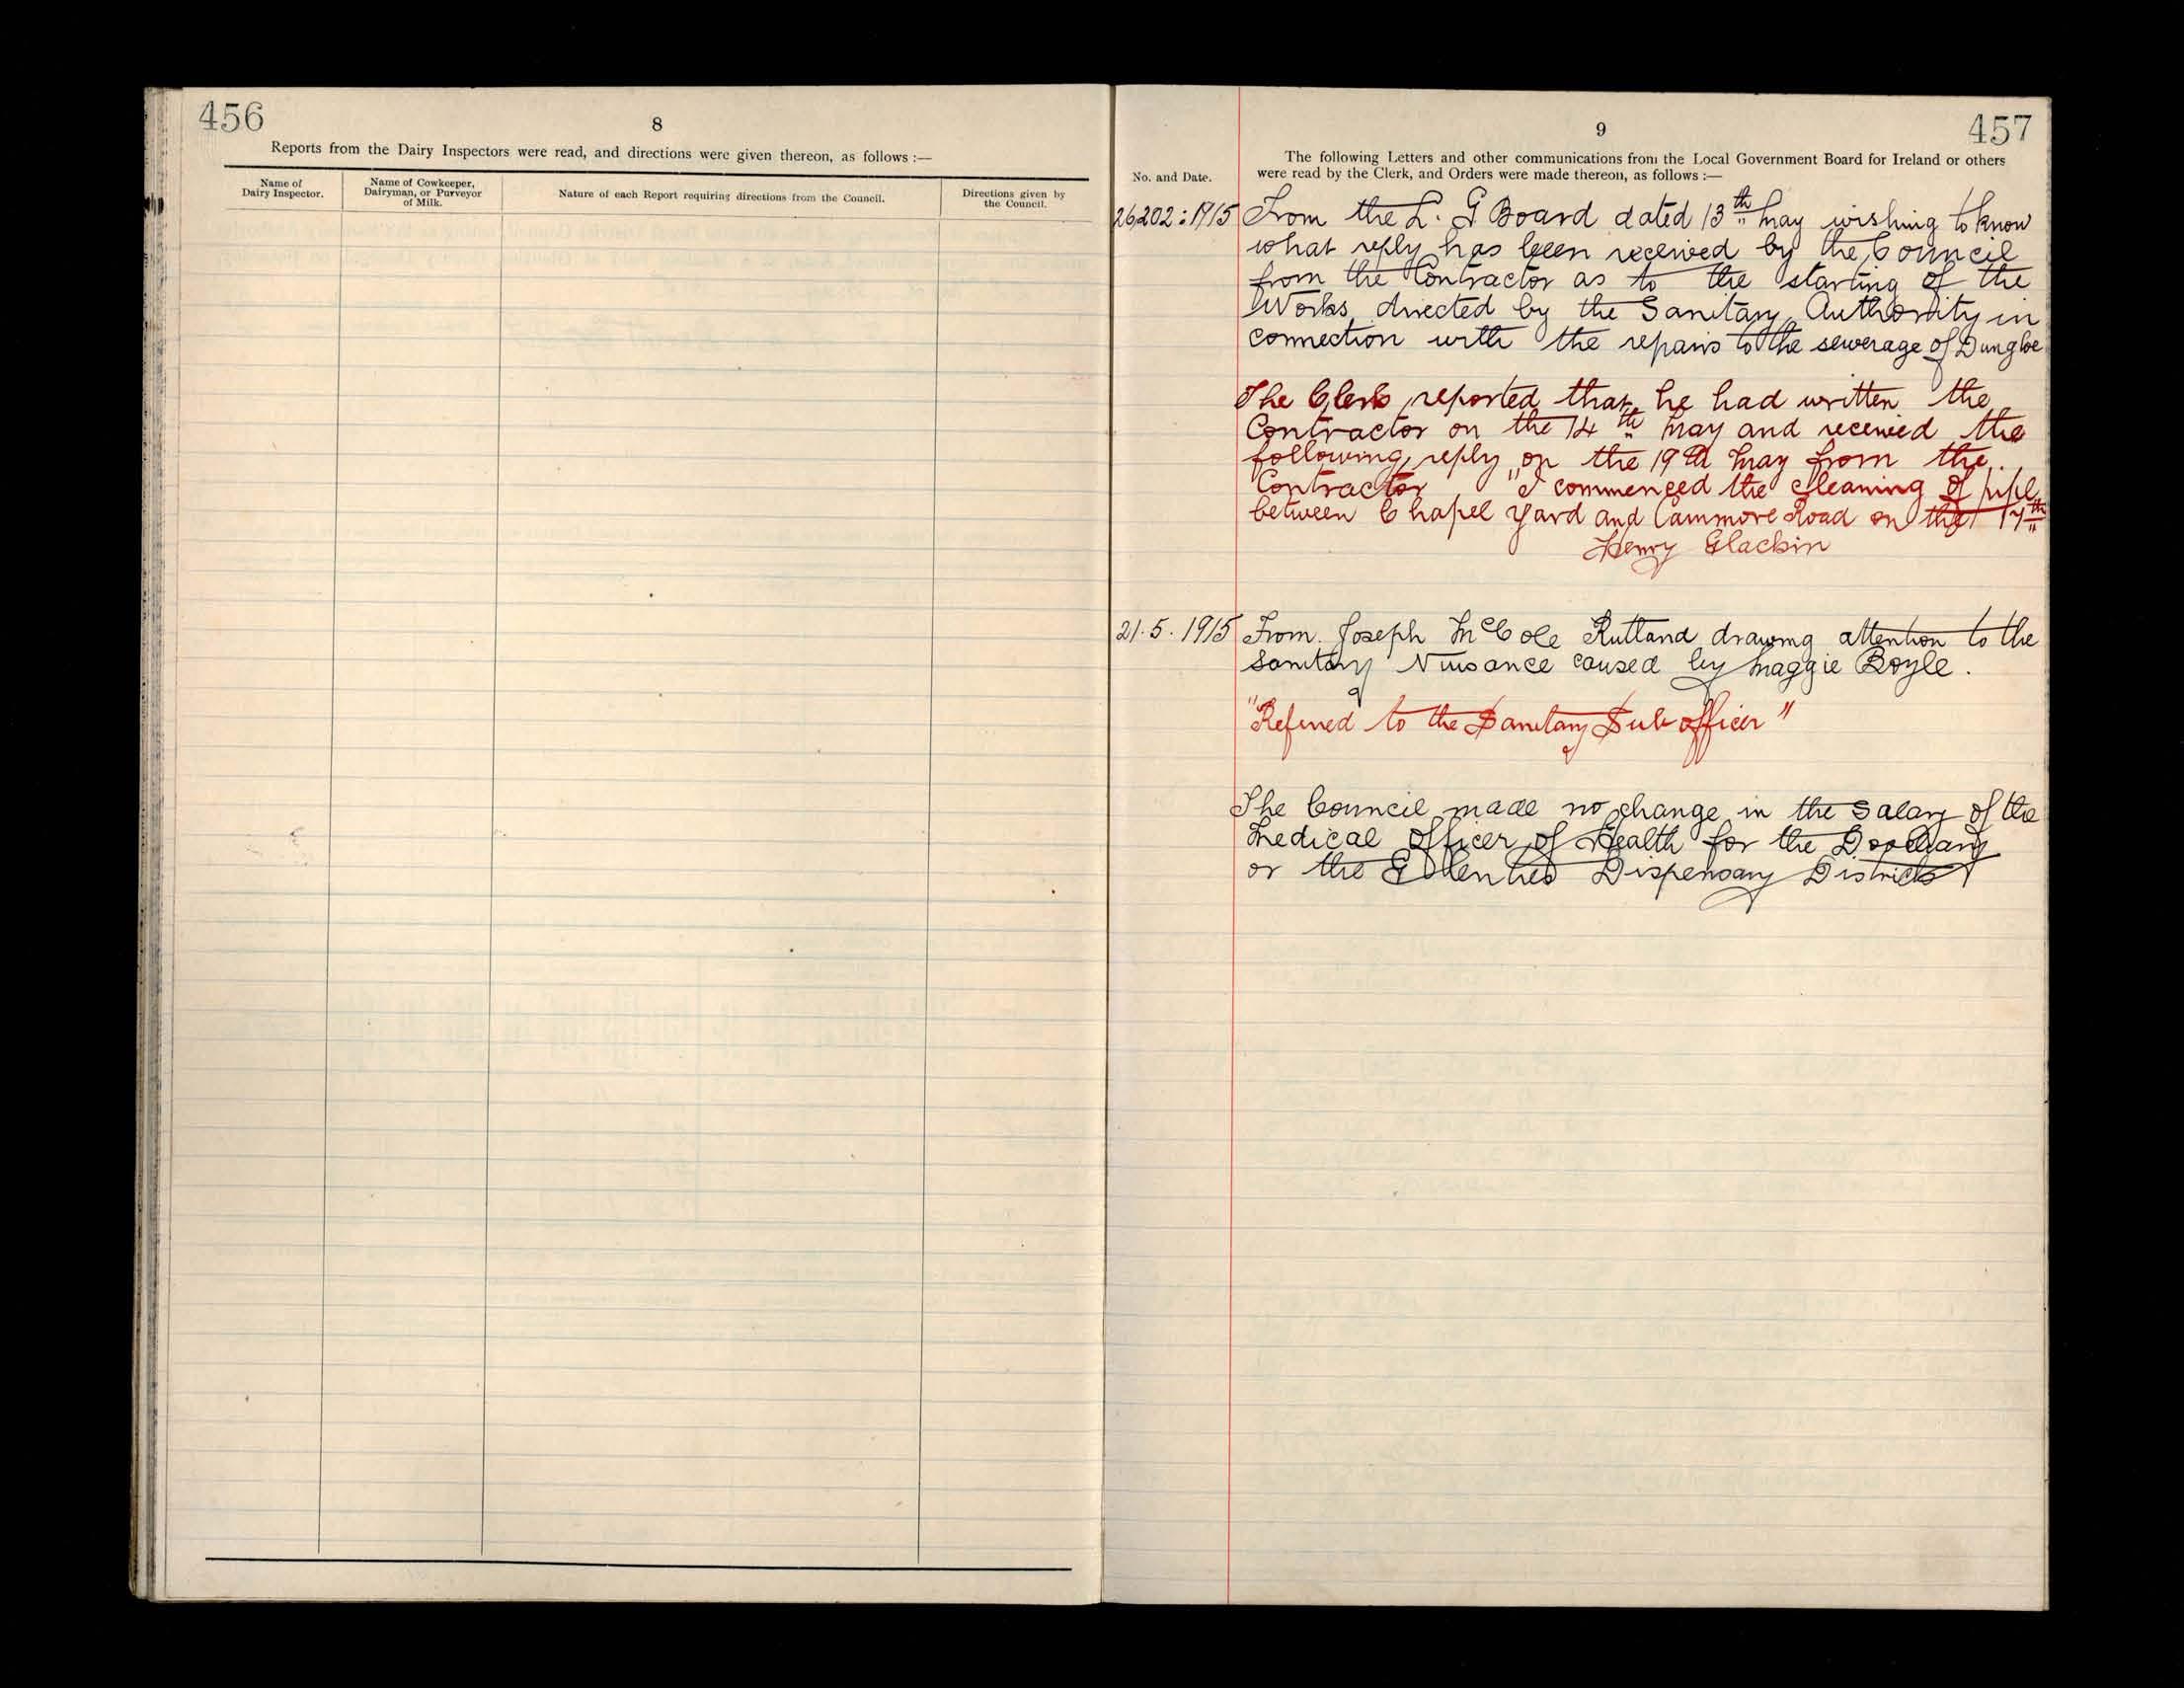 456
8
Reports from the Dairy Inspectors were read, and directions were given thereon, as follows :—
Name of Dairy Inspector.
Name of Cowkeeper, Dairyman, or Purveyor of Milk.
Nature of each Report requiring directions from the Council.
Directions given by the Council.
457
9
No. and Date.
The following Letters and other communications from the Local Government Board for Ireland or others
were read by the Clerk, and Orders were made thereon, as follows :—
26,202:1915 From the L. G Board dated 13th May wishing to know
what reply has been received by the Council
from the Contractor as to the starting of the
Works directed by the Sanitary Authority in
connection with the repairs to the sewerage of Dungloe
The Clerk reported that he had written the
Contractor on the 14th May and received the
following reply on the 19th May from the
Contractor "I commenced the cleaning of pipe
between Chapel Yard and Carnmore Road on the 17th
Henry Glackin
21.5.1915 From Joseph McCole Rutland drawing attention to the
Sanitary Nuisance caused by Maggie Boyle.
"Referred to the Sanitary Sub officer"
The Council made no change in the Salary of the
Medical Officer of Health for the Doochary
or the Glenties Dispensary Districts